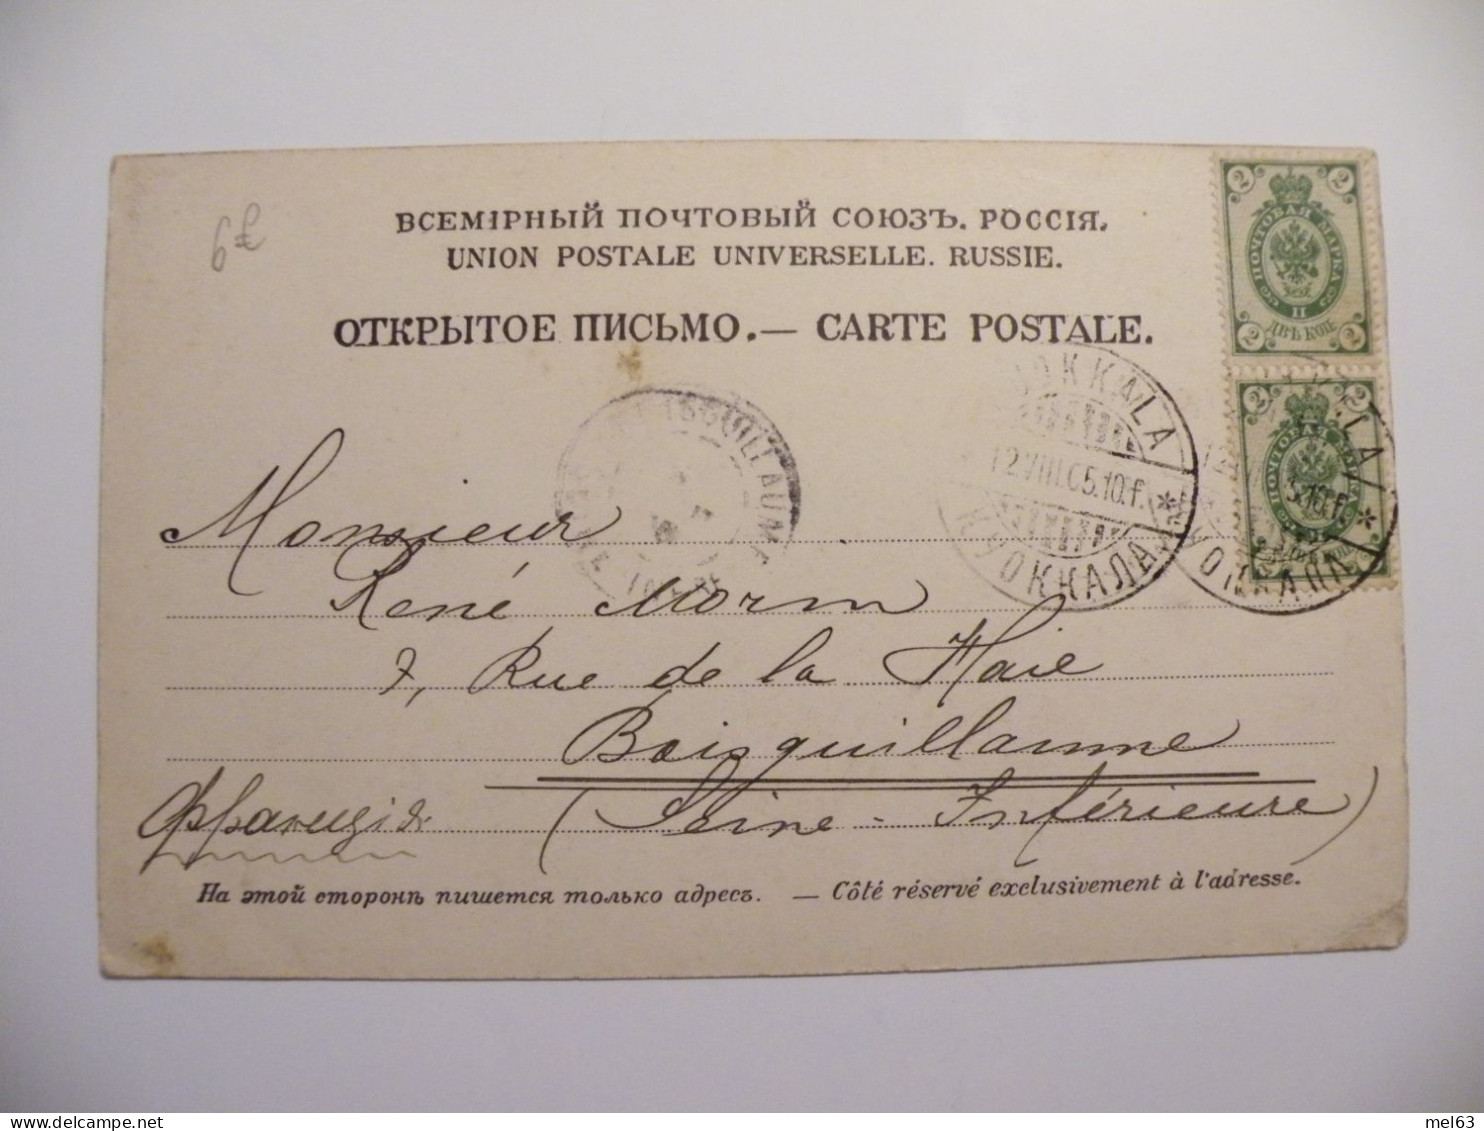 6€
ВСЕМІРНЫЙ ПОЧТОВЫЙ СОЮЗЪ. РОССІЯ.
UNION POSTALE UNIVERSELLE. RUSSIE.
ОТКРЫТОЕ ПИСЬМО.— CARTE POSTALE.
2 2
ПОЧТОВАЯ МАРКА
II
2 ДВѢ КОП. 2
2 2
ПОЧТОВАЯ
KUOKKALA
12.VIII.05.10.f.
КУОККАЛА
5.10.f.
Monsieur
René Morin
7, Rue de la Haie
Boisguillaume
Франція (Seine-Inférieure)
На этой сторонѣ пишется только адресъ. — Côté réservé exclusivement à l'adresse.
mel63